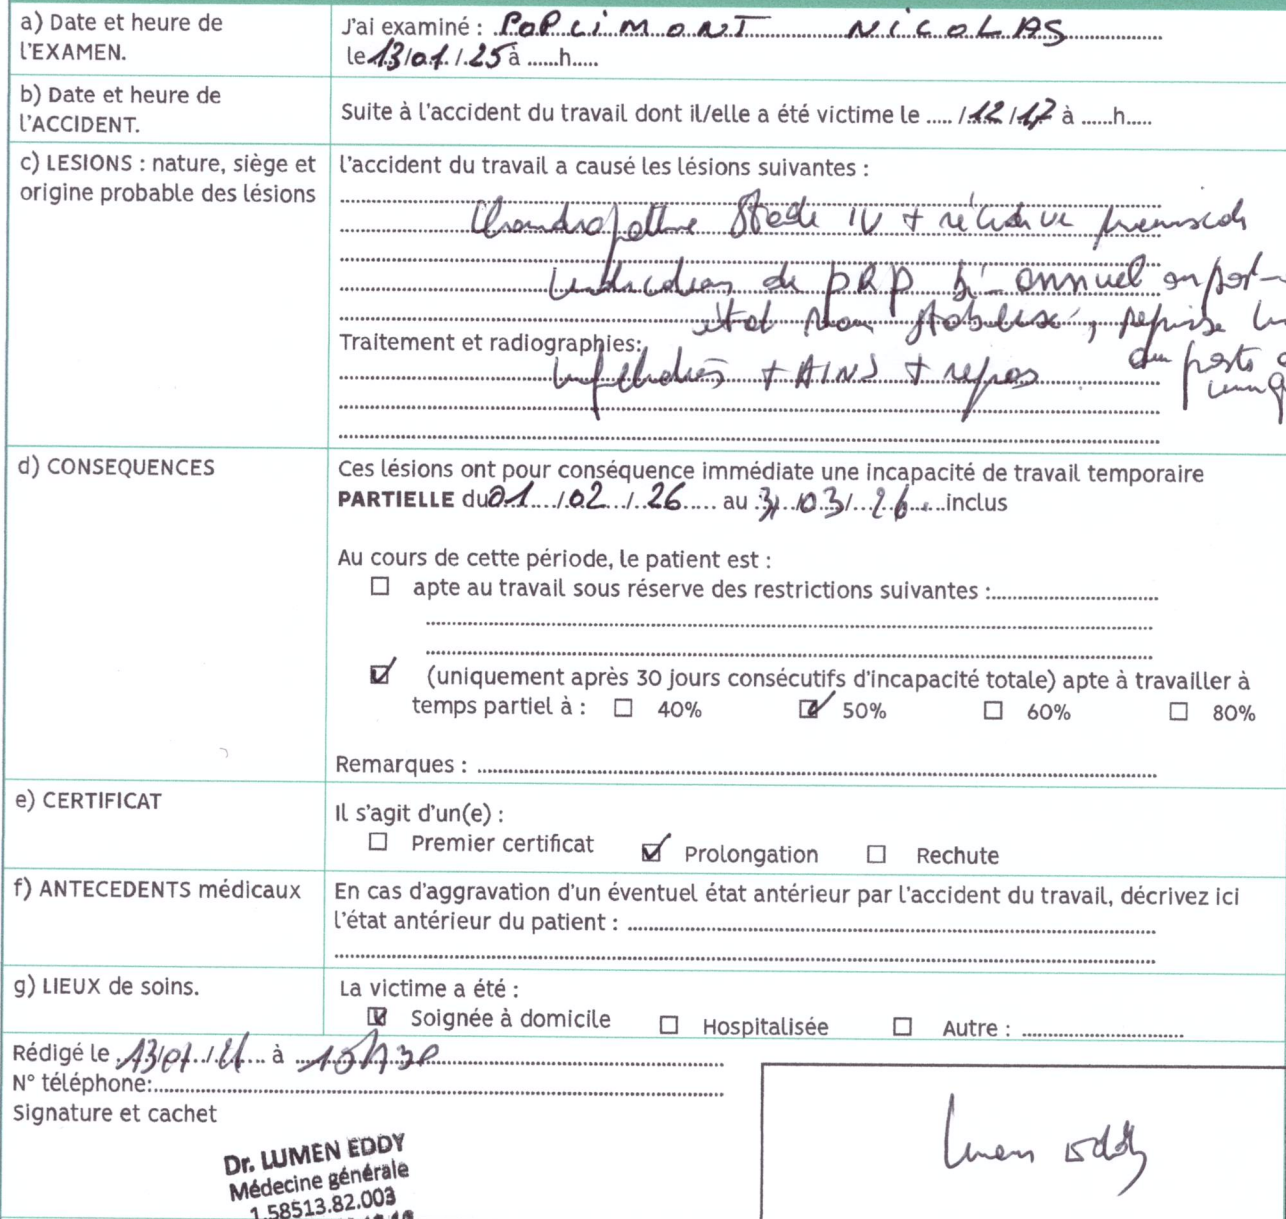 a) Date et heure de l'EXAMEN.
J'ai examiné : POPLIMONT NICOLAS
le 13/01/25 à ......h.....
b) Date et heure de l'ACCIDENT.
Suite à l'accident du travail dont il/elle a été victime le ..... /12/17 à ......h.....
c) LESIONS : nature, siège et origine probable des lésions
l'accident du travail a causé les lésions suivantes :
Stade IV + récidive
de PRP bi-annuel
état non stabilisé, reprise
Traitement et radiographies:
+ AINS + repos
d) CONSEQUENCES
Ces lésions ont pour conséquence immédiate une incapacité de travail temporaire
PARTIELLE du 01/02/26 au 31/03/26 inclus
Au cours de cette période, le patient est :
☐ apte au travail sous réserve des restrictions suivantes :
☑ (uniquement après 30 jours consécutifs d'incapacité totale) apte à travailler à
temps partiel à : ☐ 40% ☑ 50% ☐ 60% ☐ 80%
Remarques :
e) CERTIFICAT
Il s'agit d'un(e) :
☐ Premier certificat ☑ Prolongation ☐ Rechute
f) ANTECEDENTS médicaux
En cas d'aggravation d'un éventuel état antérieur par l'accident du travail, décrivez ici
l'état antérieur du patient :
g) LIEUX de soins.
La victime a été :
☑ Soignée à domicile ☐ Hospitalisée ☐ Autre :
Rédigé le 13/01/ à
N° téléphone:
Signature et cachet
Dr. LUMEN EDDY
Médecine générale
1.58513.82.003
Lumen Eddy